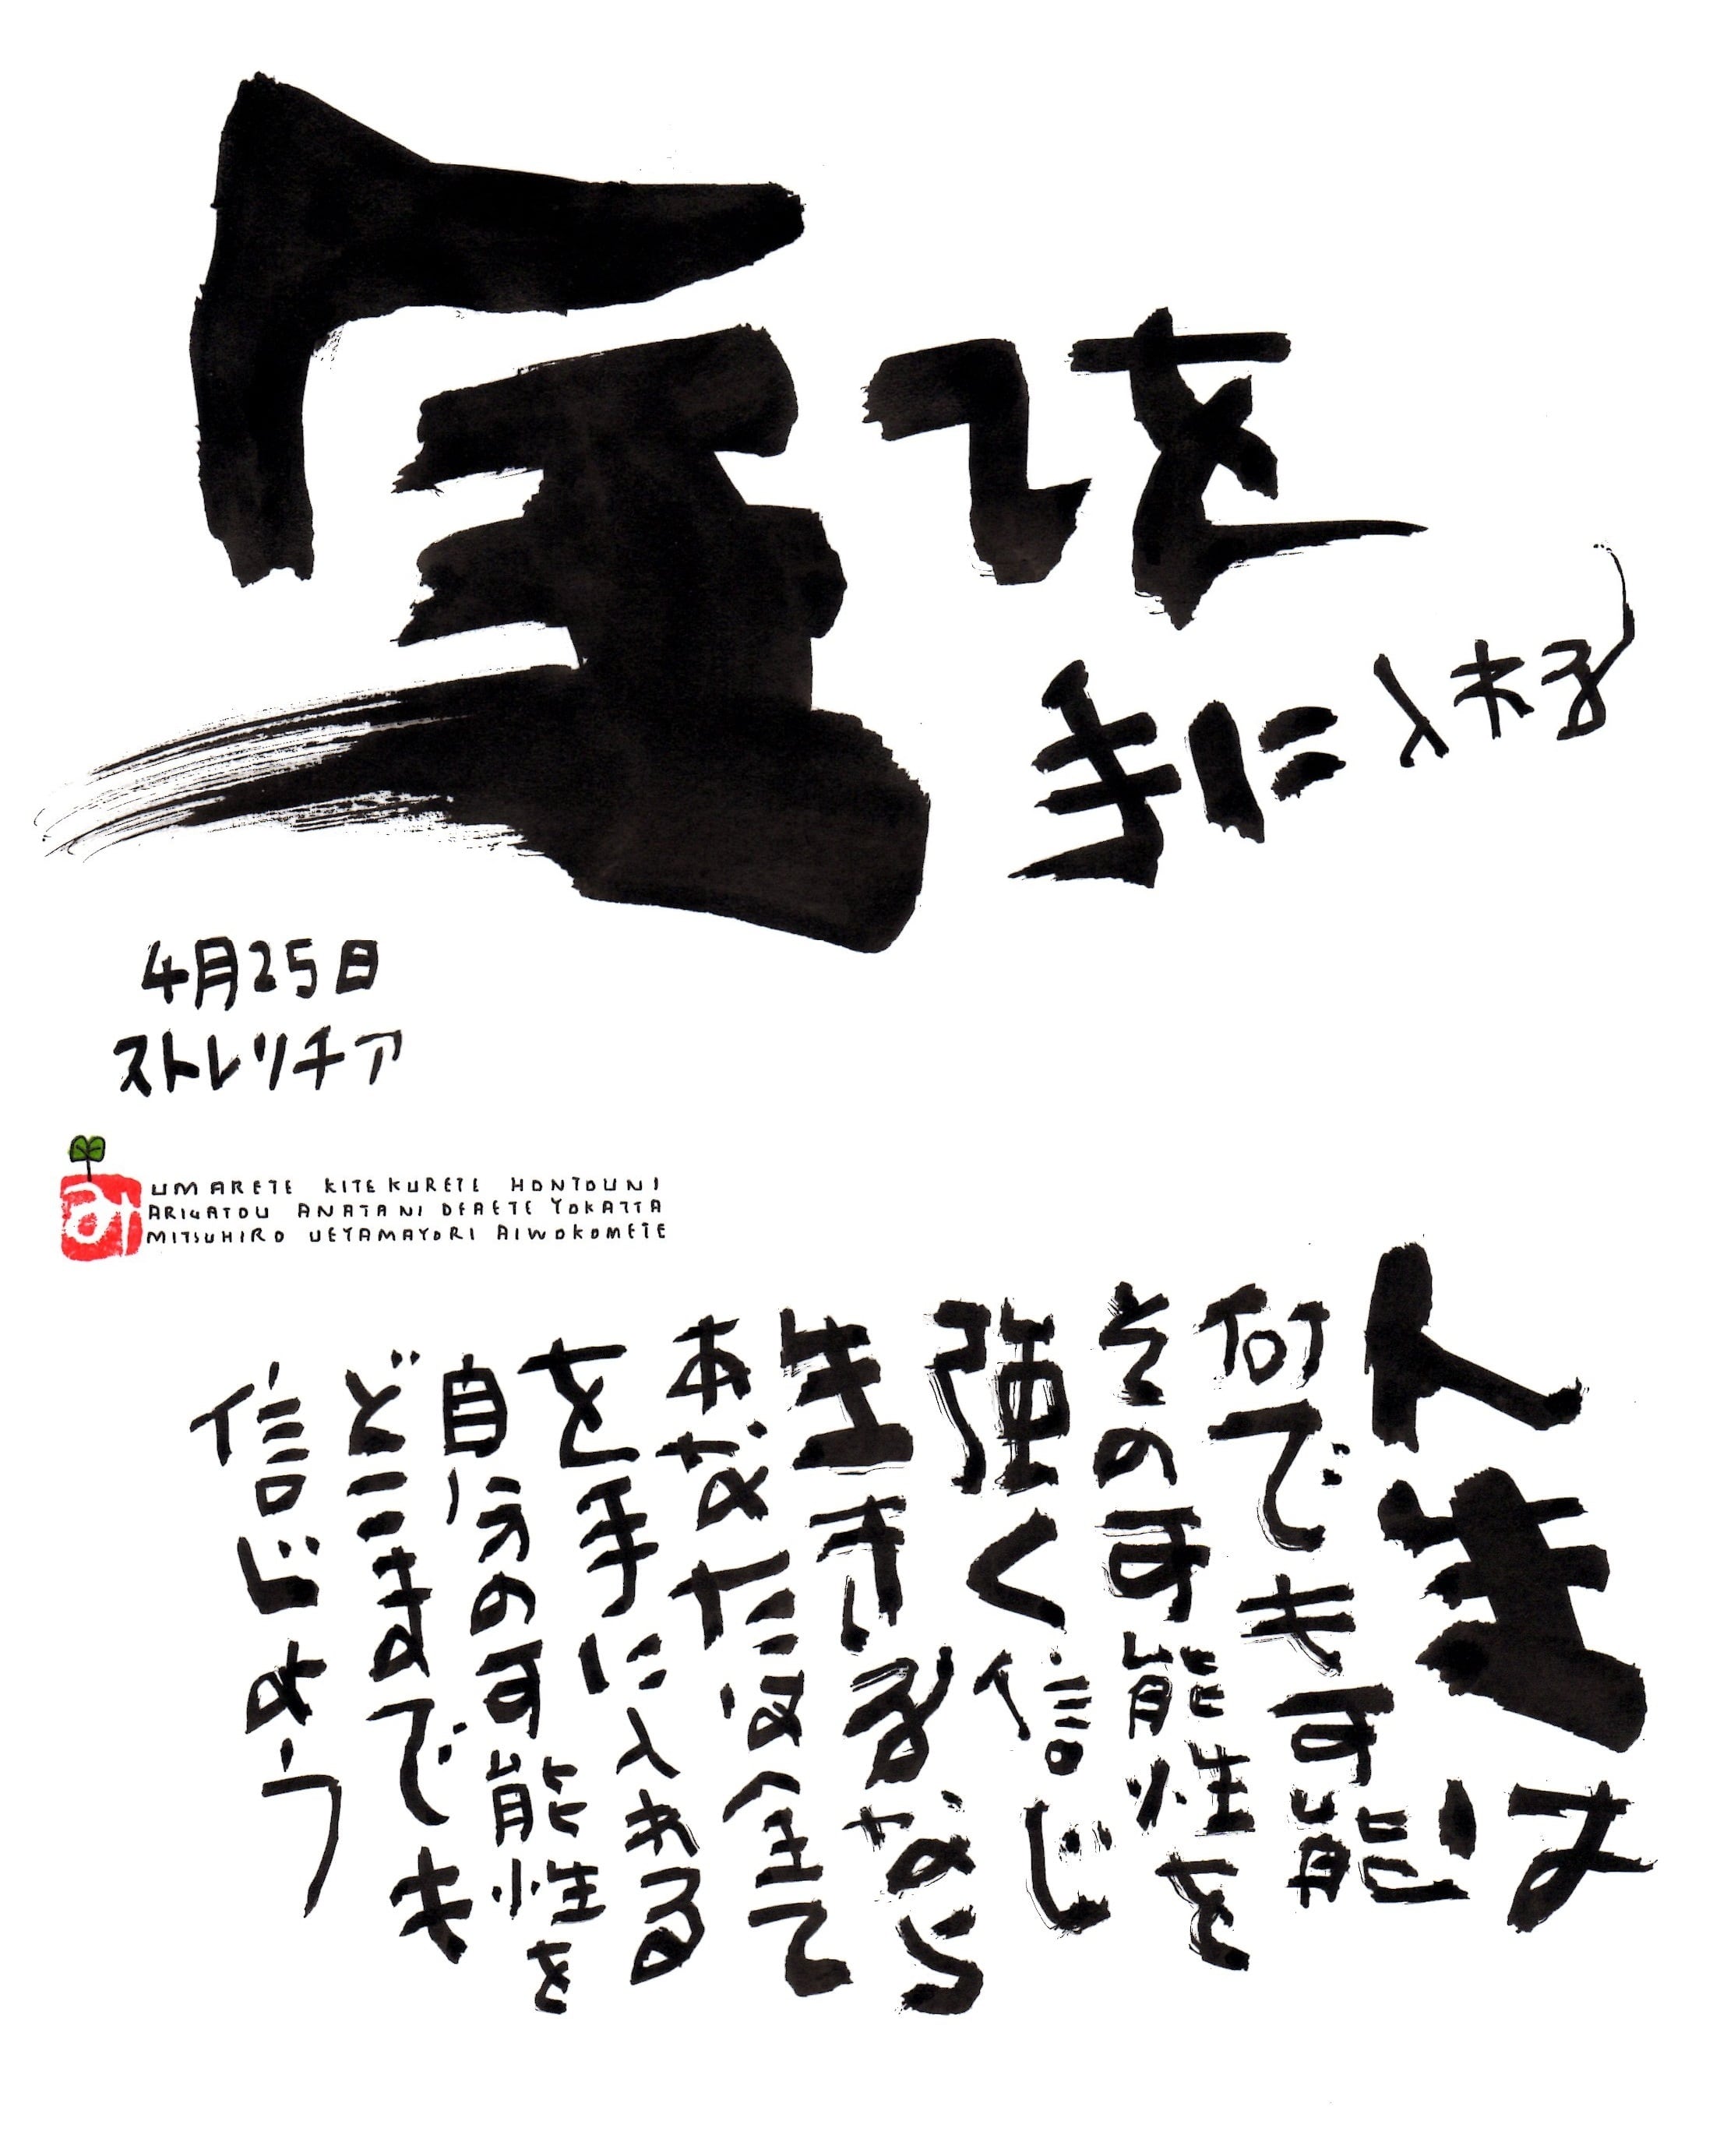 全てを
手に入れる
4月25日
ストレリチア
み
UMARETE KITEKURETE HONTOUNI
ARIGATOU ANATANI DEAETE YOKATTA
MITSUHIRO UEYAMAYORI AIWOKOMETE
人生は
何でも可能！
その可能性を
強く信じ
生きるなら
あなたは全て
を手に入れる
自分の可能性を
どこまでも
信じよう